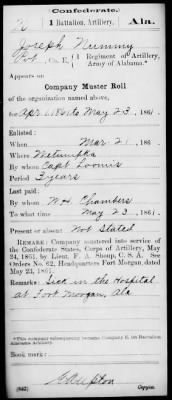 Confederate.
1 Battalion, Artillery. Ala.
Joseph Nummy
Pvt., Co. E, 1 Regiment of Artillery, Army of Alabama.*
Appears on
Company Muster Roll
of the organization named above,
for Apr 1 & to May 23, 1861.
Enlisted:
When Mar 21, 186
Where Wetumpka
By whom Capt Loomis
Period 3 years
Last paid:
By whom W H Chambers
To what time May 23, 1861.
Present or absent Not Stated
REMARK: Company mustered into service of
the Confederate States, Corps of Artillery, May
24, 1861, by Lieut. F. A. Shoup, C. S. A. See
Orders No. 62, Headquarters Fort Morgan, dated
May 23, 1861.
Remarks: Sick in the Hospital
at Fort Morgan, Ala
*This company subsequently became Company E, 1st Battalion
Alabama Artillery.
Book mark:
(642) Copyist.